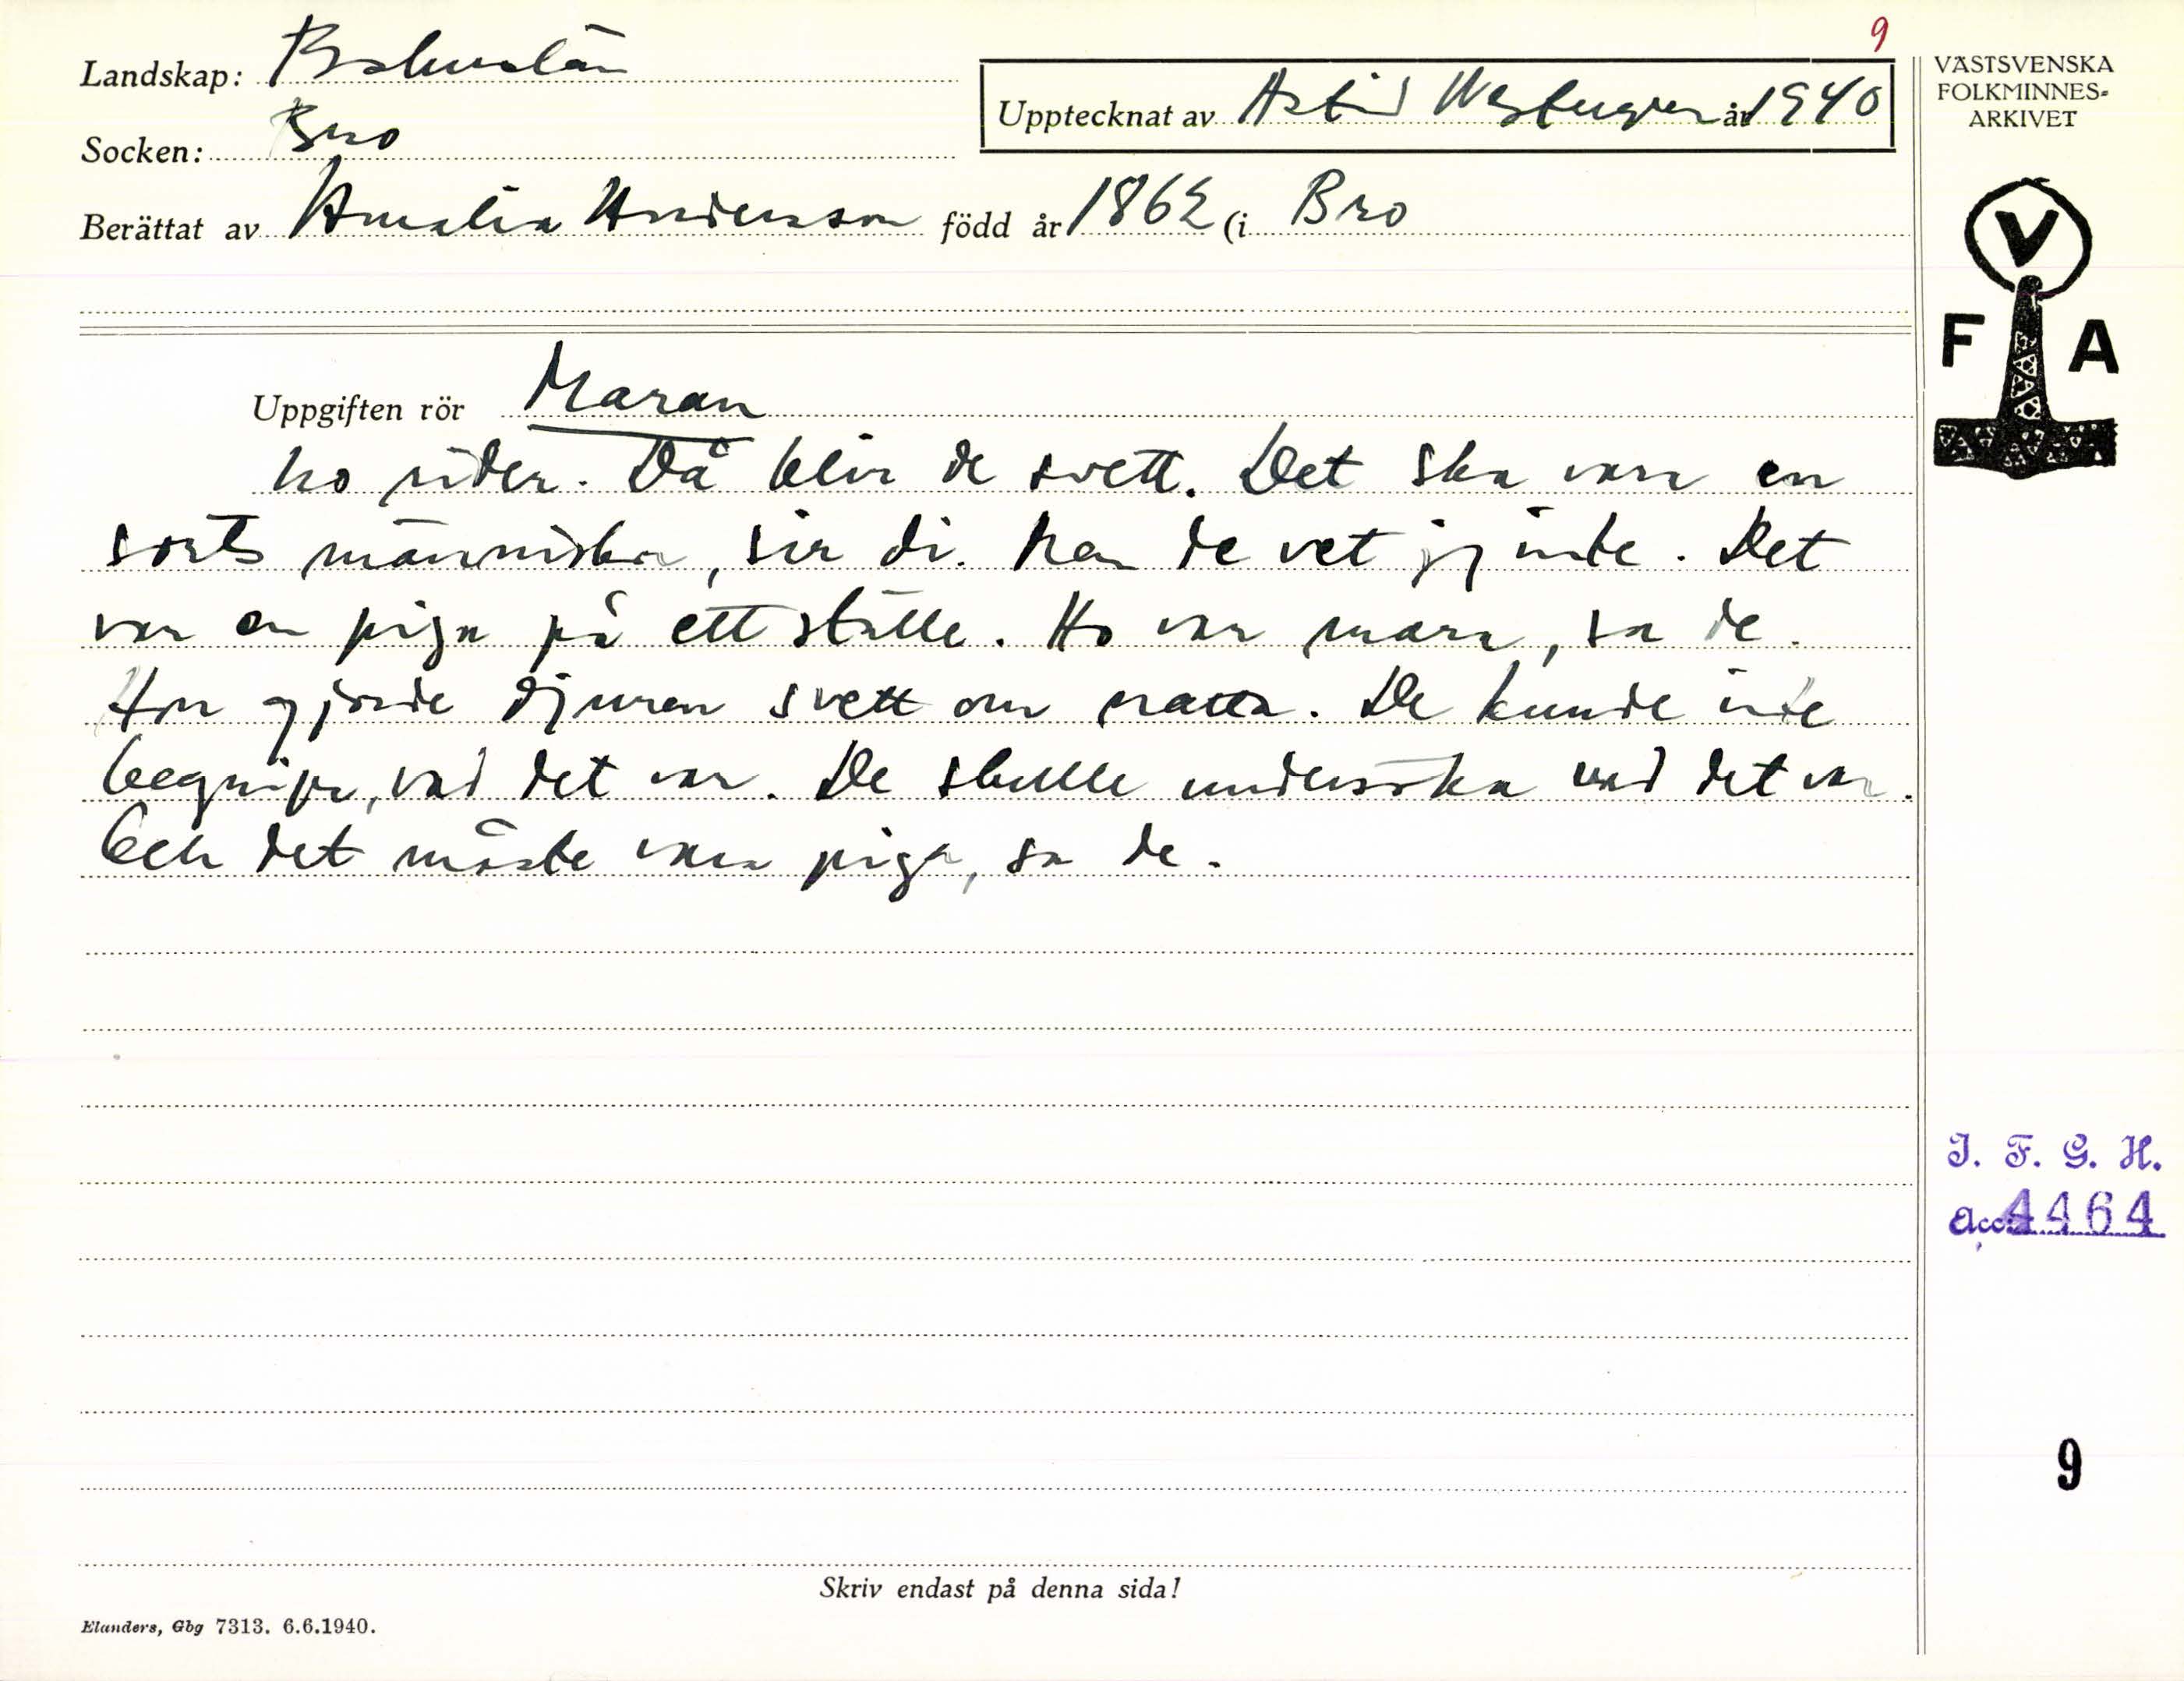 9
Landskap: Bohuslän
VÄSTSVENSKA
FOLKMINNES-
ARKIVET
Upptecknat av Astrid år 1940
Socken: Bro
Berättat av Amalia Andersson född år 1862 (i Bro
V
F A
Uppgiften rör Maran
ho rider. Då blir de svett. Det ska vara en
sorts människa, sir di. Men de vet jg inte. Det
var en piga på ett ställe. Ho var mara, sa de.
Hon gjorde djuren svett om natta. De kunde inte
begripa, vad det var. De skulle undersöka vad det var.
Och det måste vara piga, sa de.
I. F. G. H.
Acc. 4464
9
Skriv endast på denna sida!
Elanders, Gbg 7313. 6.6.1940.